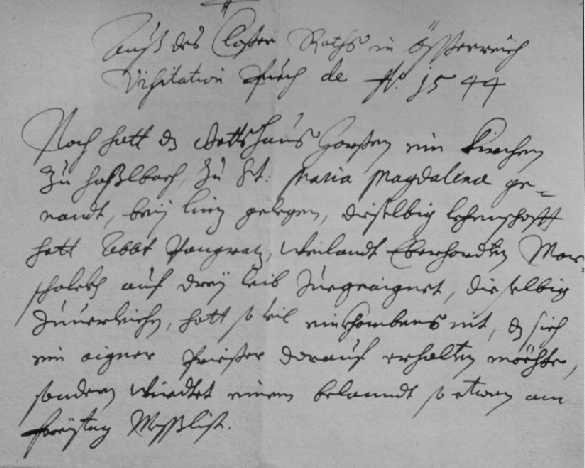 Auß des Closter Raths in Össterreich
Visitation Puech de Aº. 1544
Noch hatt dz Gottshauß Garsten ein Kirchen
zu Haßlbach, zu St. Maria Magdalena ge-
nandt, beÿ Linz gelegen, dieselbig Lehenschafft
hatt Abbt Pangraz, weilandt Eberhardten Mar-
schalckh auf dreÿ leib zuegeaignet, dieselbig
zuuerleichen, hatt so vil einkhombens nit, dz sich
ein aigner Priester darauf erhalten möchte,
sondern würdtet einem belandt so etwan am
Freÿtag Meßlist.